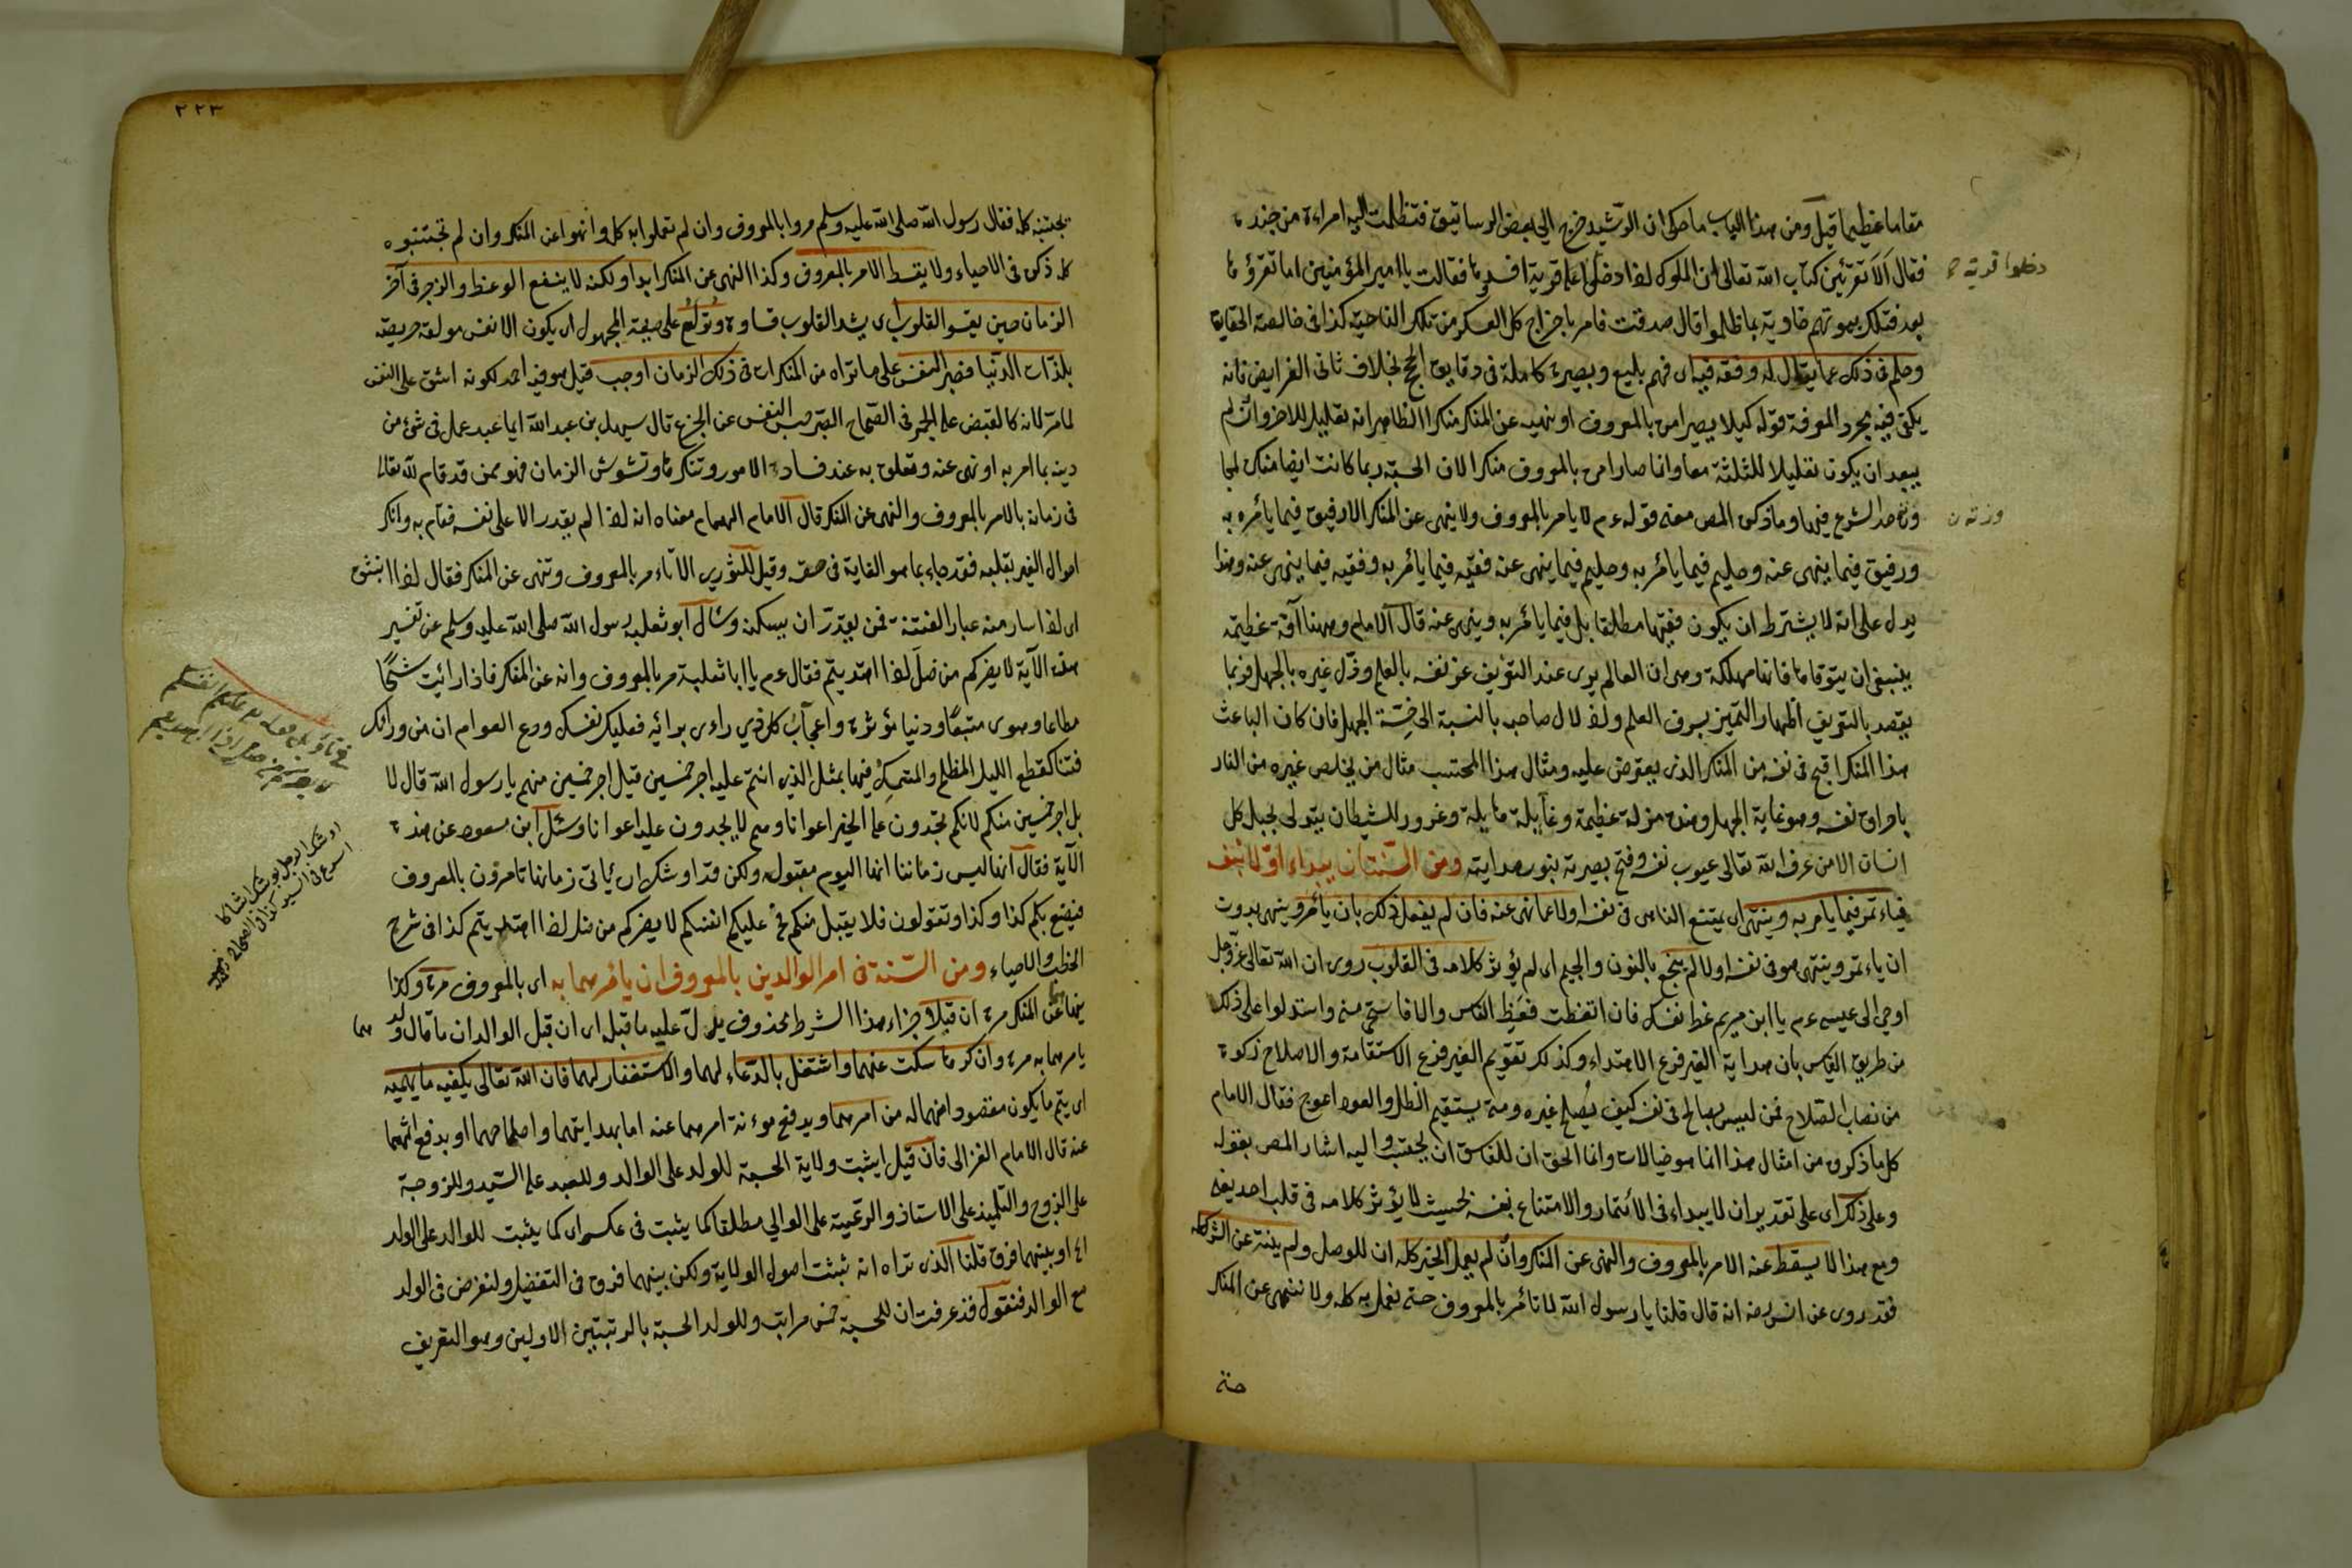 مقاما عظيما قيل ومن هذا الباب ما حكى ان الرّشيد خرج الى بعض الرساتيق فتظلمت اليه امراءة من جنده
فقال ألا تقرئين كتاب الله تعالى ان الملوك اذا دخلوا قرية افسدوها فقالت يا امير المؤمنين اما تقرؤ ما
بعد فتلك بيوتهم خاوية بما ظلموا قال صدقت فامر باخراج كل العسكر من تلك الناحية كذا فى خالصة الحقايق
وحلم فى ذلك عما يقال له وفقه فيه اى فهم بليغ وبصيرة كاملة فى دقايق الحج بخلاف ثانى الفرايض فانه
يكفى فيه مجرد المعرفة قوله كيلا يصير امره بالمعروف او نهيه عن المنكر منكرا الظاهر انه تعليل للاخر وان لم
يبعد ان يكون تعليلا للثلثة معا وانما صار امره بالمعروف منكرا لان الحسبة ربما كانت ايضا منكرة لمجا
وزته حد الشرع فيها وما ذكره المص معنى قوله عم لا يامر بالمعروف ولا ينهى عن المنكر الا رفيق فيما يأمره به
ورفيق فيما ينهى عنه وحليم فيما يأمر به وحليم فيما ينهى عنه فقيه فيما يأمر به وفقيه فيما ينهى عنه وهذا
يدل على انه لا يشترط ان يكون فقيها مطلقا بل فيما يأمر به وينهى عنه قال الامام وههنا آفة عظيمة
ينبغى ان يتوقاها فانها مهلكة وهى ان العالم يرى عند التعريف عز نفسه بالعلم وذل غيره بالجهل فربما
يقصد بالتعريف اظهار التميز بشرف العلم واذلال صاحبه بالنسبة الى خِسّة الجهل فان كان الباعث
هذا المنكر اقبح فى نفسه من المنكر الذى يعترض عليه ومثال هذا المحتسب مثال من يخلص غيره من النار
باحراق نفسه وهو غاية الجهل وهذه مزلة عظيمة وغايلة هايلة وغرور للشيطان يتدلى بحبله كل
انسان الا من عرفه الله تعالى عيوب نفسه وفتح بصيرته بنور هدايته ومن السّنة ان يبداء اوّلا بنفسه
فياءتمر فيما يامر به وينتهى اى يمتنع الناهى فى نفسه اولا عما نهى عنه فان لم يفعل ذلك بان يأمر وينهى بدون
ان ياءتمر وينتهى هو فى نفسه اولا لم ينجع بالنون والجيم اى لم يؤثر كلامه فى القلوب روى ان الله تعالى عزّ وجل
اوحى الى عيسى عم يا ابن مريم عظ نفسك فان اتعظت فعظ الناس والا فاستحى منى واستدلوا على ذلك
من طريق القياس بان هداية الغير فرع الاهتداء وكذلك تقويم الغير فرع الاستقامة والاصلاح زكوة
من نصاب الصّلاح فمن ليس بصالح فى نفسه كيف يُصلح غيره ومتى يستقيم الظل والعود اعوج فقال الامام
كل ما ذكروه من امثال هذا انما هو خيالات وانما الحق ان للفاسق ان يحتسب واليه اشار المص بقوله
وعلى ذلك اى على تقدير ان لا يبداء فى الأئتمار والامتناع بنفسه بحيث لا يؤثر كلامه فى قلب احد يعنى
ومع هذا لا يسقط عنه الامر بالمعروف والنهى عن المنكر وان لم يعمل الخير كله ان للوصل ولم ينته عن الشر كله
فقد روى عن انس رضه انه قال قلنا يا رسول الله لا نأمر بالمعروف حتى نعمل به كله ولا ننهى عن المنكر
دخلوا قريته
وزته ن
حتى
٢٢٣
نجتنبه كله فقال رسول الله صلى الله عليه وسلم مروا بالمعروف وان لم تعملوا به كله وانهوا عن المنكر وان لم تجتنبوه
كله ذكره فى الاحياء ولا يسقط الامر بالمعروف وكذا النهى عن المنكر ابدا ولكنه لا ينفع الوعظ والزجر فى آخر
الزمان حين يقسو القلوب اى يشد القلوب قساوة وتُولَعُ على صيغة المجهول اى يكون الانفس مولعة حريصة
بلذات الدّنيا فصبر النفس على ما تراه من المنكرات فى ذلك الزمان اوجب قيل هو فيه احمد لكونه اشق على النفس
لمامر لانه كالقبض على الجمر فى الصّحاح الصّبر حبس النفس عن الجزع قال سهل بن عبد الله ايما عبد عمل فى شئ من
دينه بما امر به او نهى عنه وتعلق به عند فساد الامور وتنكرها وتشوش الزمان فهو ممن قد قام لله تعالى
فى زمانه بالامر بالمعروف والنهى عن المنكر قال الامام الهمام معناه انه اذا لم يقدر الا على نفسه فقام به وانكر
احوال الغير بقلبه فقد جاء بما هو الغاية فى حقه وقيل للثورى الا تاءمر بالمعروف وتنهى عن المنكر فقال اذا انبثق
اى اذا سار منه غبار الفتنة فمن يقدر ان يسكنه وسأل أبو ثعلبة رسول الله صلى الله عليه وسلم عن تفسير
هذه الآية لا يضركم من ضل اذا اهتديتم فقال عم يا ابا ثعلبة مر بالمعروف وانه عن المنكر فاذا رائيت شحًّا
مطاعا وهوى متبعًا ودنيا مؤثرة واعجاب كل ذى راءى برائيه فعليك نفسك ودع العوام ان من ورائك
فتنا كقطع الليل المظلم والمتمسك فيها بمثل الذى انتم عليه اجر خمسين قيل اجر خمسين منهم يا رسول الله قال لا
بل اجر خمسين منكم لانكم تجدون على الخير اعوانا وهم لا يجدون عليه اعوانا وسئل ابن مسعود عن هذه
الآية فقال انها ليس زماننا انها اليوم مقبولة ولكن قد اوشك ان يأتى زمانها تامرون بالمعروف
فيصنع بكم كذا وكذا وتقولون فلا يقبل منكم فح عليكم انفسكم لا يضركم من ضل اذا اهتديتم كذا فى شرح
الخطب والاحياء ومن السّنة فى امر الوالدين بالمعروف ان يأمرهما به اى بالمعروف مرة وكذا
ينهاهما عن المنكر مرة ان قبلا جزاء هذا الشرط محذوف يدلّ عليه ما قبله اى ان قبل الوالدان ما قال ولد
يامرهما به مرة وان كرها سكت عنهما واشتغل بالدّعاء لهما والاستغفار لهما فان الله تعالى يكفيه ما يهمه
اى يتم ما يكون مقصودا مهما له من امرهما ويدفع موءنة امرهما عنه اما بهدايتهما واصلاحهما او بدفع اثمهما
عنه قال الامام الغزالى فان قيل ايثبت ولاية الحسبة للولد على الوالد وللعبد على السّيد وللزوجة
على الزوج والتلميذ على الاستاذ والرعية على الوالي مطلقا كما يثبت فى عكسه اى كما يثبت للوالد على الولد
او بينهما فرق قلنا الذى تراه انه يثبت اصول الولاية ولكن بينهما فروق فى التفضيل ولنفرض فى الولد
مع الوالد فنقول قد عرفت ان للحسبة خمس مراتب وللولد الحسبة بالرتبتين الاوليين وهو التعريف
فى تأويل قوله تع عليكم انفسكم
لا يضركم من ضل اذا اهتديتم
اوشك الرجل يوشك ايشاكا
اسرع فى السير كذا فى الصحاح
هما